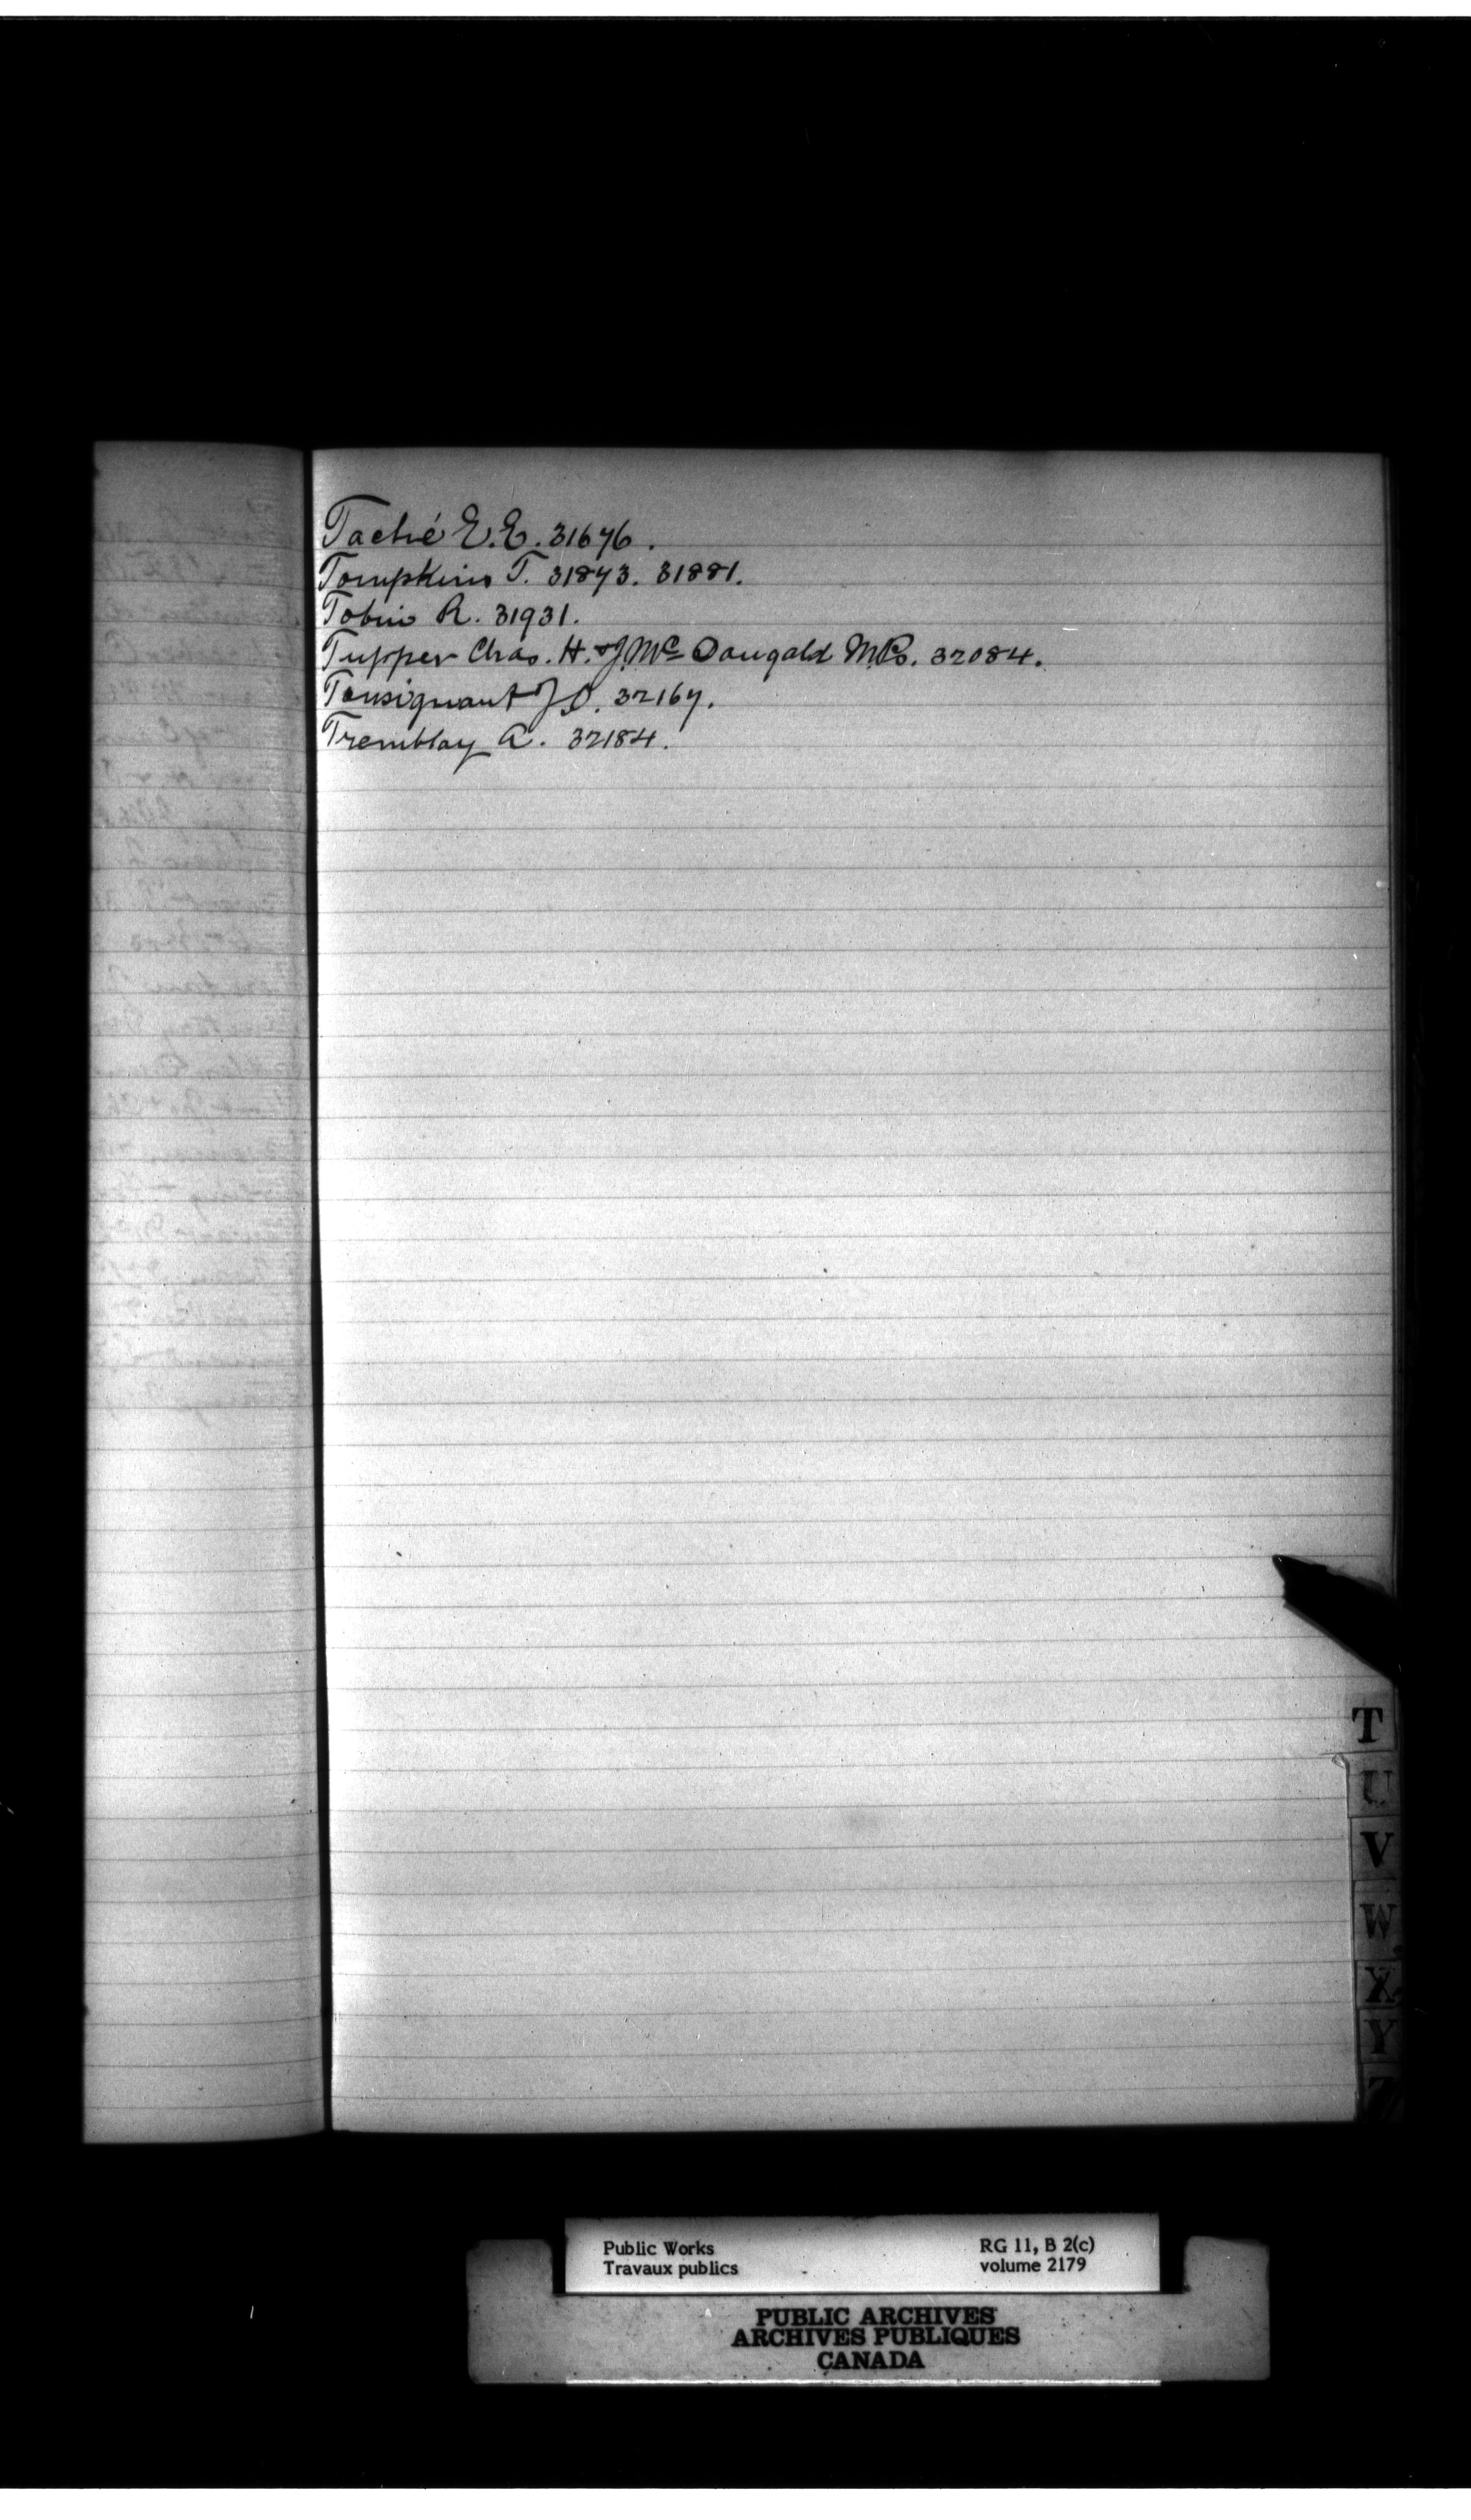 Taché E.E. 31676.
Tompkins T. 31873. 31881.
Tobin R. 31931.
Tupper Chas. H. & J. Mc Dougald M.Ps. 32084.
Tousignant J.O. 32167.
Tremblay A. 32184.
T
U
V
W
X
Y
Z
Public Works RG 11, B 2(c)
Travaux publics volume 2179
PUBLIC ARCHIVES
ARCHIVES PUBLIQUES
CANADA